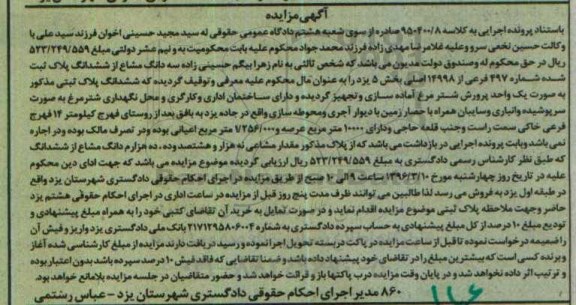 آگهی مزایده
باستناد پرونده اجرایی به کلاسه ۹۵۰۴۰۰/۸ صادره از سوی شعبه هشتم دادگاه عمومی حقوقی له سید مجید حسینی اخوان فرزند سید علی با
وکالت حسین نخعی سرو و علیه غلامرضا مهدی زاده فرزند محمد جواد محکوم علیه بابت محکومیت به و نیم عشر دولتی مبلغ ۵۲۳/۲۴۹/۵۵۹
ریال در حق محکوم له وصندوق دولت مدیون می باشد که شخص ثالثی به نام زهرا بیگم حسینی زاده سه دانگ مشاع از ششدانگ پلاک ثبت
شده شماره ۴۹۷ فرعی از ۱۴۹۹۸ اصلی بخش ۵ یزد را به عنوان مال محکوم علیه معرفی و توقیف گردیده که ششدانگ پلاک ثبتی مذکور
به صورت یک واحد پرورش شتر مرغ آماده سازی و تجهیز گردیده و دارای ساختمان اداری وکارگری و محل نگهداری شترمرغ به صورت
سرپوشیده وانباری وسایبان همراه با حصار زمین با دیوار آجری ومحوطه سازی واقع در جاده یزد به بافق بعد از روستای فهرج کیلومتر ۱۴ فهرج
فرعی خاکی سمت راست وجنب قلعه حاجی ودارای ۱۰۰۰۰ متر مربع عرصه و۱/۲۵۶/۰۰۰ متر مربع اعیانی بوده ودر تصرف مالک بوده ودر اجاره
نمی باشد وبابت پرونده اجرایی در بازداشت می باشد که از پلاک مذکور مقدار مشاعی نه هزار و هشتصد وده ، ده هزارم دانگ مشاع از ششدانگ
که طبق نظر کارشناس رسمی دادگستری به مبلغ ۵۲۳/۲۴۹/۵۵۹ ریال ارزیابی گردیده موضوع مزایده می باشد که جهت ادای دین محکوم
علیه در تاریخ روز چهارشنبه مورخ ۱۳۹۶/۳/۱۰ ساعت ۹ الی ۱۰ صبح از طریق مزایده در اجرای احکام حقوقی دادگستری شهرستان یزد واقع
در طبقه اول یزد به فروش می رسد لذا طالبین می توانند ظرف مدت پنج روز قبل از مزایده در ساعات اداری در اجرای احکام حقوقی هشتم یزد
حاضر وجهت ملاحظه پلاک ثبتی موضوع مزایده اقدام نماید و در صورت تمایل به خرید آن تقاضای کتبی خود را به همراه مبلغ پیشنهادی و
تودیع مبلغ ۱۰ درصد از کل مبلغ پیشنهادی به حساب سپرده دادگستری به شماره ۲۱۷۱۲۹۵۸۰۶۰۰۴ بانک ملی دادگستری یزد واریز و فیش آن
را ضمیمه درخواست نموده تا قبل از ساعت مزایده در پاکت دربسته تحویل اجرا نموده و رسید دریافت دارند مزایده از مبلغ کارشناسی شده آغاز
وبرنده کسی است که بیشترین مبلغ را در تقاضای خود پیشنهاد داده باشد وضمنا تقاضایی که فاقد فیش ۱۰ درصد سپرده باشد بدون اعتبار بوده
و ترتیب اثر داده نخواهد شد و در پایان وقت مزایده درب پاکتها باز و قرائت خواهد شد و حضور متقاضیان در جلسه مزایده بلامانع خواهد بود.
۸۶۰ مدیر اجرای احکام حقوقی دادگستری شهرستان یزد - عباس رستمی